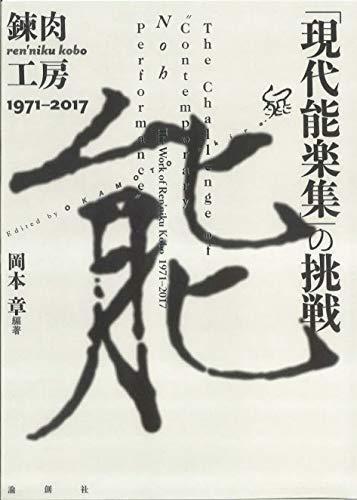 「現代能楽集」の挑戦
錬肉
ren'niku kobo
工房
1971–2017
The Challenge of
"Contemporary
Noh
Performance"
Work of Ren'niku Kobo 1971–2017
Edited by OKAMOTO Akira
能
岡本 章 編著
論創社